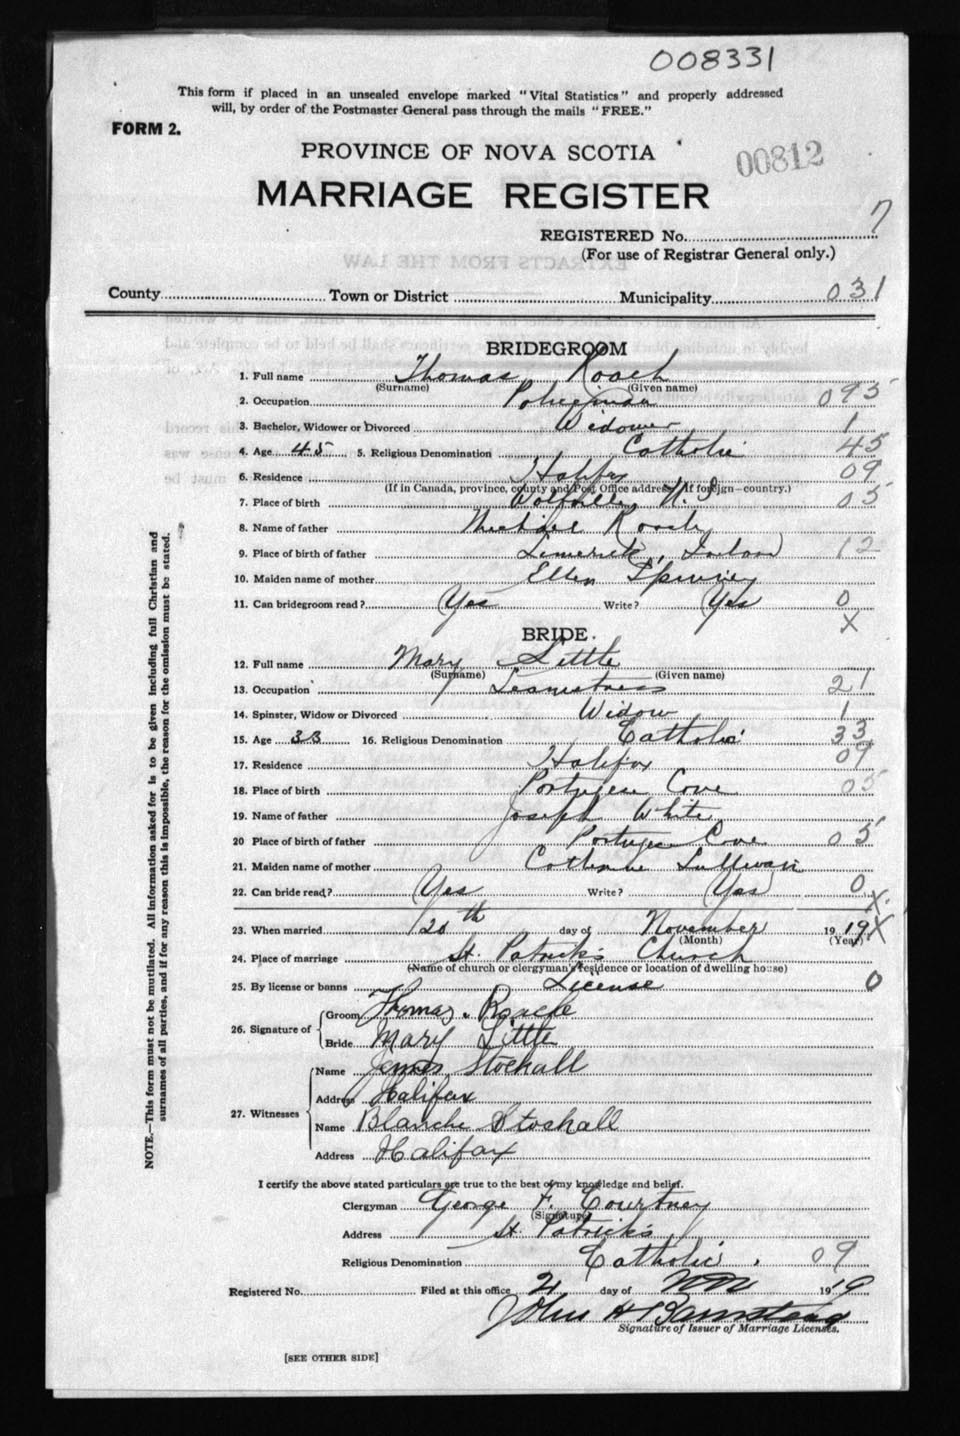 008331
This form if placed in an unsealed envelope marked "Vital Statistics" and properly addressed
will, by order of the Postmaster General pass through the mails "FREE."
FORM 2.
PROVINCE OF NOVA SCOTIA
00812
MARRIAGE REGISTER
REGISTERED No. 7
(For use of Registrar General only.)
County Town or District Municipality 031
BRIDEGROOM
1. Full name Thomas Roach
(Surname) (Given name)
2. Occupation Policeman 095
3. Bachelor, Widower or Divorced Widower 1
4. Age 45 5. Religious Denomination Catholic 45
6. Residence Halifax 09
(If in Canada, province, county and Post Office address; if foreign—country.)
7. Place of birth Wolfville N.S 05
8. Name of father Michael Roach
9. Place of birth of father Limerick, Ireland 12
10. Maiden name of mother Ellen
11. Can bridegroom read? Yes Write? Yes 0
X
BRIDE.
12. Full name Mary Little
(Surname) (Given name)
13. Occupation Seamstress 21
14. Spinster, Widow or Divorced Widow 1
15. Age 33 16. Religious Denomination Catholic 33
17. Residence Halifax 09
18. Place of birth Portugese Cove 05
19. Name of father Joseph White
20 Place of birth of father Portugese Cove 05
21. Maiden name of mother Catherine Sullivan
22. Can bride read? Yes Write? Yes 0
X
23. When married 20th day of November 1919 X
(Month) (Year)
24. Place of marriage St. Patrick's Church
(Name of church or clergyman's residence or location of dwelling house)
25. By license or banns License 0
26. Signature of Groom Thomas Roache
Bride Mary Little
27. Witnesses Name James Stockall
Address Halifax
Name Blanche Stockall
Address Halifax
I certify the above stated particulars are true to the best of my knowledge and belief.
Clergyman George F. Courtney
(Signature)
Address St. Patrick's
Religious Denomination Catholic. 09
Registered No. Filed at this office 21 day of Nov 1919
John H Barnstead
Signature of Issuer of Marriage Licenses.
[SEE OTHER SIDE]
NOTE.—This form must not be mutilated. All information asked for is to be given including full Christian and
surnames of all parties, and if for any reason this is impossible, the reason for the omission must be stated.